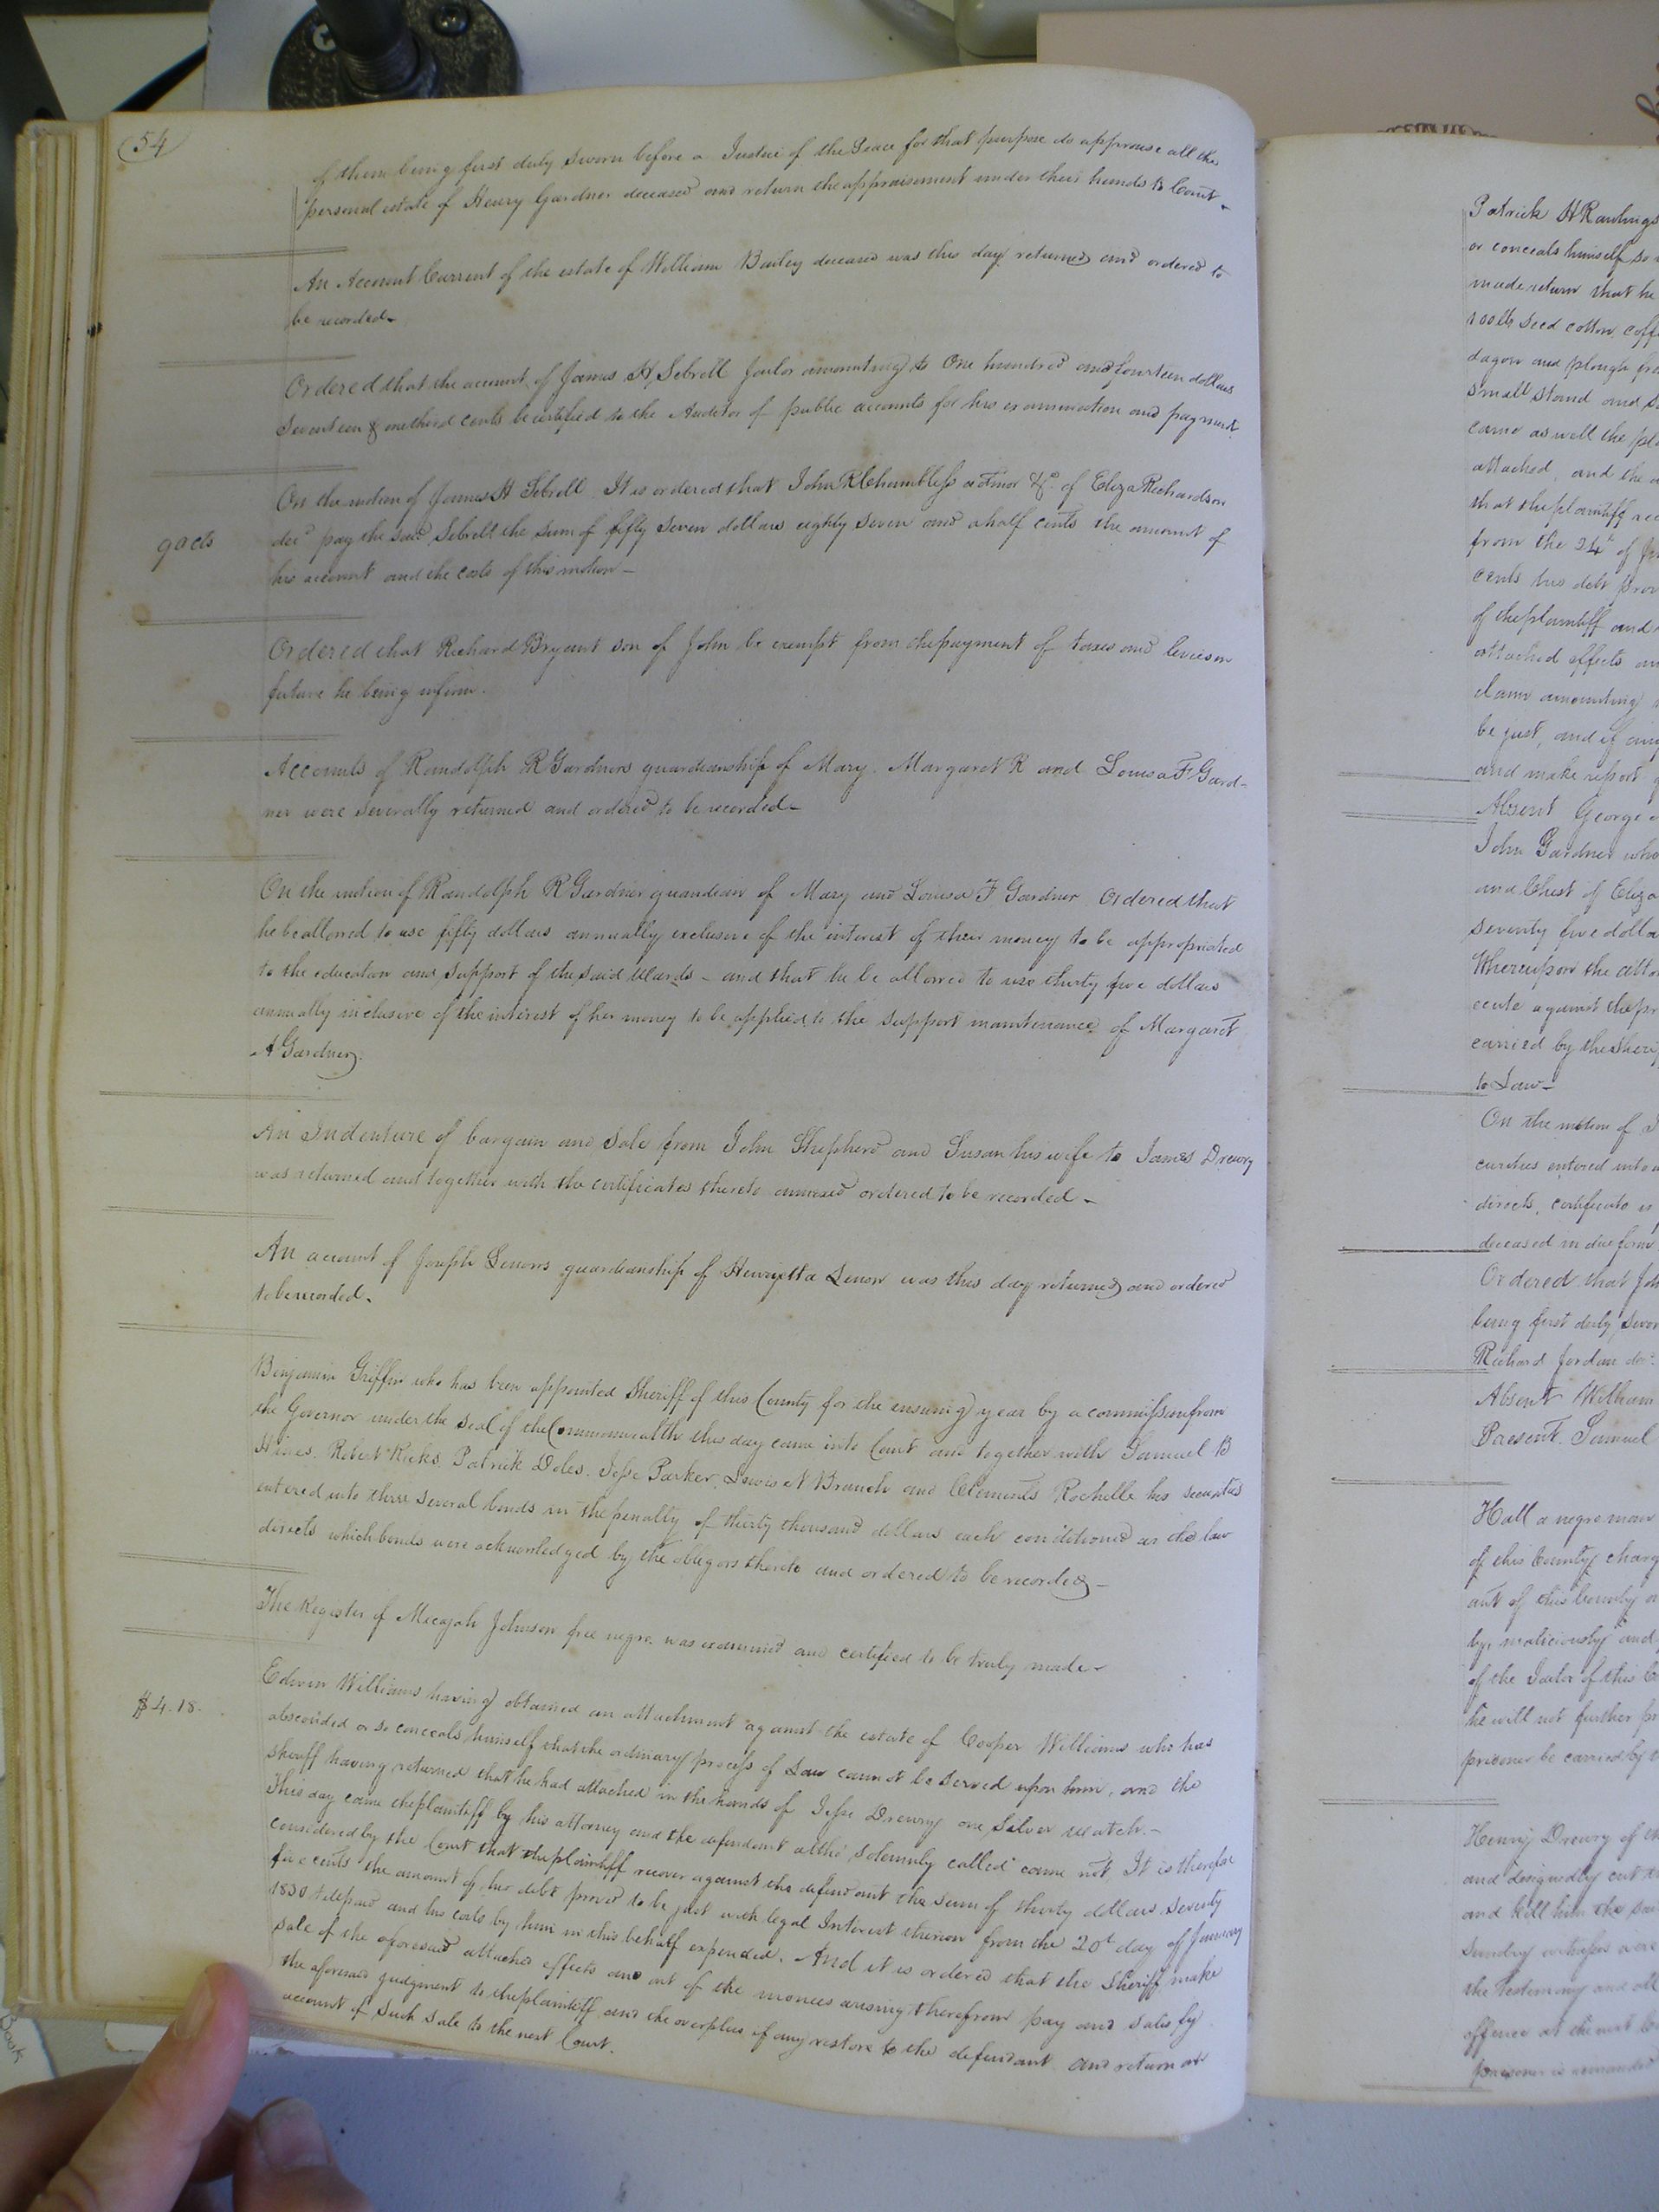 54
of them being first duly sworn before a Justice of the Peace for that purpose do appraise all the
personal estate of Henry Gardner deceased and return the appraisement under their hands to Court.
An Account Current of the estate of William Bailey deceased was this day returned and ordered to
be recorded.
Ordered that the account of James H Sebrell Jailor amounting to One hundred and fourteen dollars
Seventeen & one third cents be certified to the Auditor of public accounts for his examination and payment.
On the motion of James H Sebrell It is ordered that John R Chambless admor &c. of Eliza Richardson
90 cts
decd pay the said Sebrell the sum of fifty seven dollars eighty seven and a half cents the amount of
his account and the costs of this motion –
Ordered that Richard Bryant son of John be exempt from the payment of taxes and levies in
future he being infirm.
Accounts of Randolph R Gardners guardianship of Mary. Margaret R and Louisa F Gard-
ner were severally returned and ordered to be recorded–
On the motion of Randolph R Gardner guardian of Mary and Louisa F Gardner Ordered that
he be allowed to use fifty dollars annually exclusive of the interest of their money to be appropriated
to the education and support of the said Wards – and that he be allowed to use thirty five dollars
annually inclusive of the interest of her money to be applied to the support maintenance of Margaret
A Gardner.
An Indenture of bargain and sale from John Shepherd and Susan his wife to James Drewry
was returned and together with the certificates thereto annexed ordered to be recorded –
An account of Joseph Lenows guardianship of Henrietta Lenow was this day returned and ordered
to be recorded.
Benjamin Griffin who has been appointed Sheriff of this County for the ensuing year by a commission from
the Governor under the seal of the Commonwealth this day came into Court and together with Samuel B
Hines. Robert Ricks Patrick Doles. Jesse Parker. Lewis N Branch and Clements Rochelle his securities
entered into three several bonds in the penalty of thirty thousand dollars each conditioned as the law
directs which bonds were acknowledged by the obligors thereto and ordered to be recorded –
The Register of Micajah Johnson free negro was examined and certified to be truly made –
Edwin Williams having obtained an attachment against the estate of Cooper Williams who has
$4.18.
absconded or so conceals himself that the ordinary process of Law cannot be served upon him, and the
sheriff having returned that he had attached in the hands of Jesse Drewry one silver watch. –
This day came the plaintiff by his attorney and the defendant altho' solemnly called came not, It is therefore
considered by the Court that the plaintiff recover against the defendant the sum of thirty dollars seventy
five cents the amount of his debt proved to be just with legal Interest thereon from the 20t day of January
1830 till paid and his costs by him in this behalf expended. And it is ordered that the Sheriff make
sale of the aforesaid attached effects and out of the monies arising therefrom pay and satisfy
the aforesaid judgment to the plaintiff and the overplus if any restore to the defendant and return an
account of such sale to the next Court.
Patrick H Rawlings
or conceals himself so
made return that he
100 lb seed cotton, coff
and plough
small stand and
came as well the pl
attached, and the
that the plaintiff rec
from the 24th of J
cents his debt prov
of the plaintiff and
attached effects an
claim amounting
be just, and if any
and make report
Absent George
John Gardner who
and Chest of Eliza
seventy five dolla
Whereupon the atto
cute against the pr
carried by the Sheri
to Law –
On the motion of
curities entered into
directs, certificate is
deceased in due form
Ordered that Joh
being first duly swor
Richard Jordan decd.
Absent William
Present. Samuel
Hall a negro man
of this County charg
ant of this County
by, maliciously and
of the Jailor of this C
he will not further pr
prisoner be carried by t
Henry Drewry of th
and designedly cut
and kill him the sai
Sundry witnesses were
the testimony and all
offence at the next C
prisoner is remanded
Book